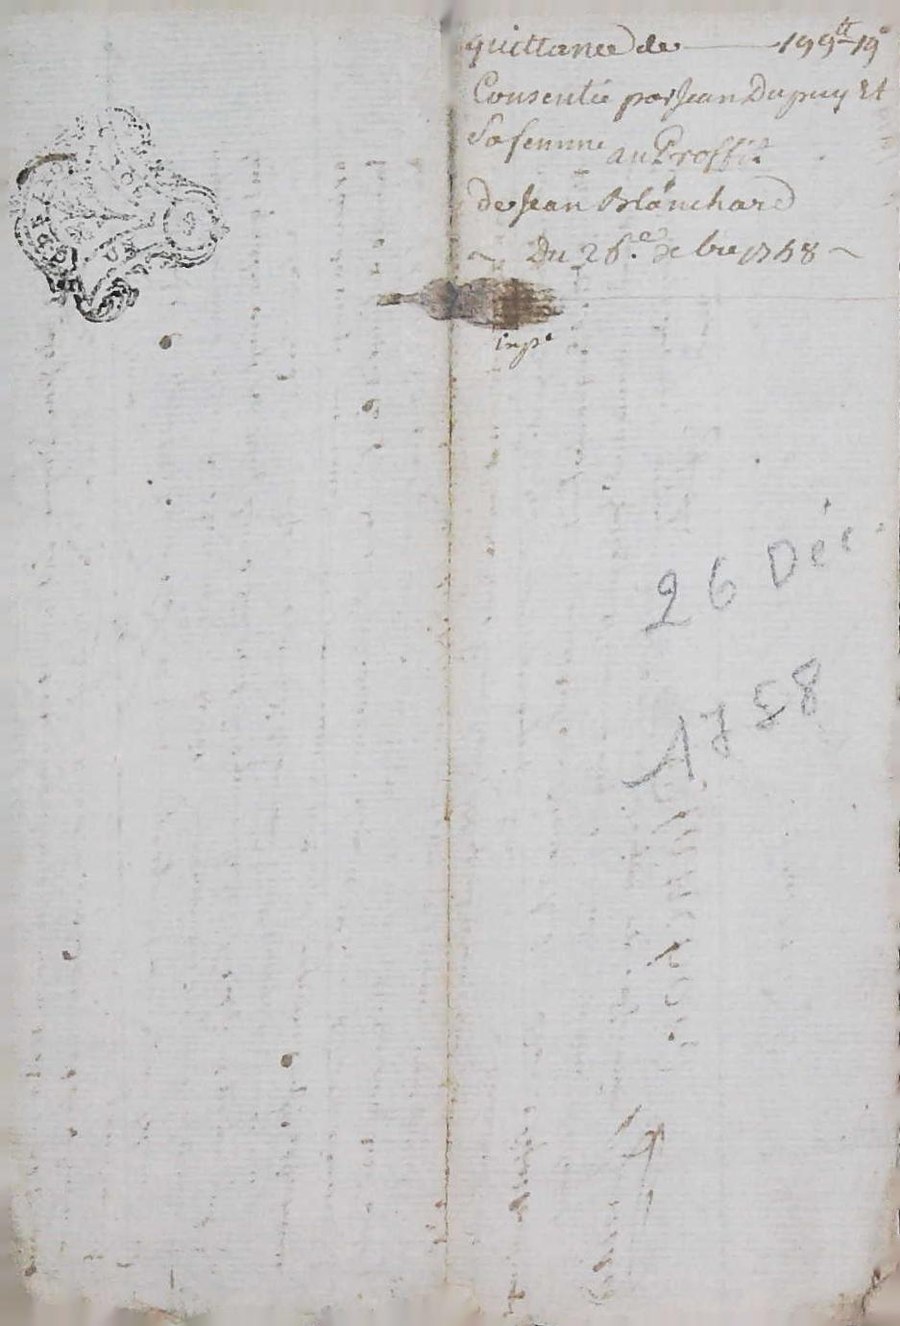 quittance de 199ᵗᵗ 19ˢ
Consentie par Jean Dupuy Et
Sa femme au Proffit
de Jean Blanchard
Du 26.ᵉ Xbre 1758
26 Déc.
1758